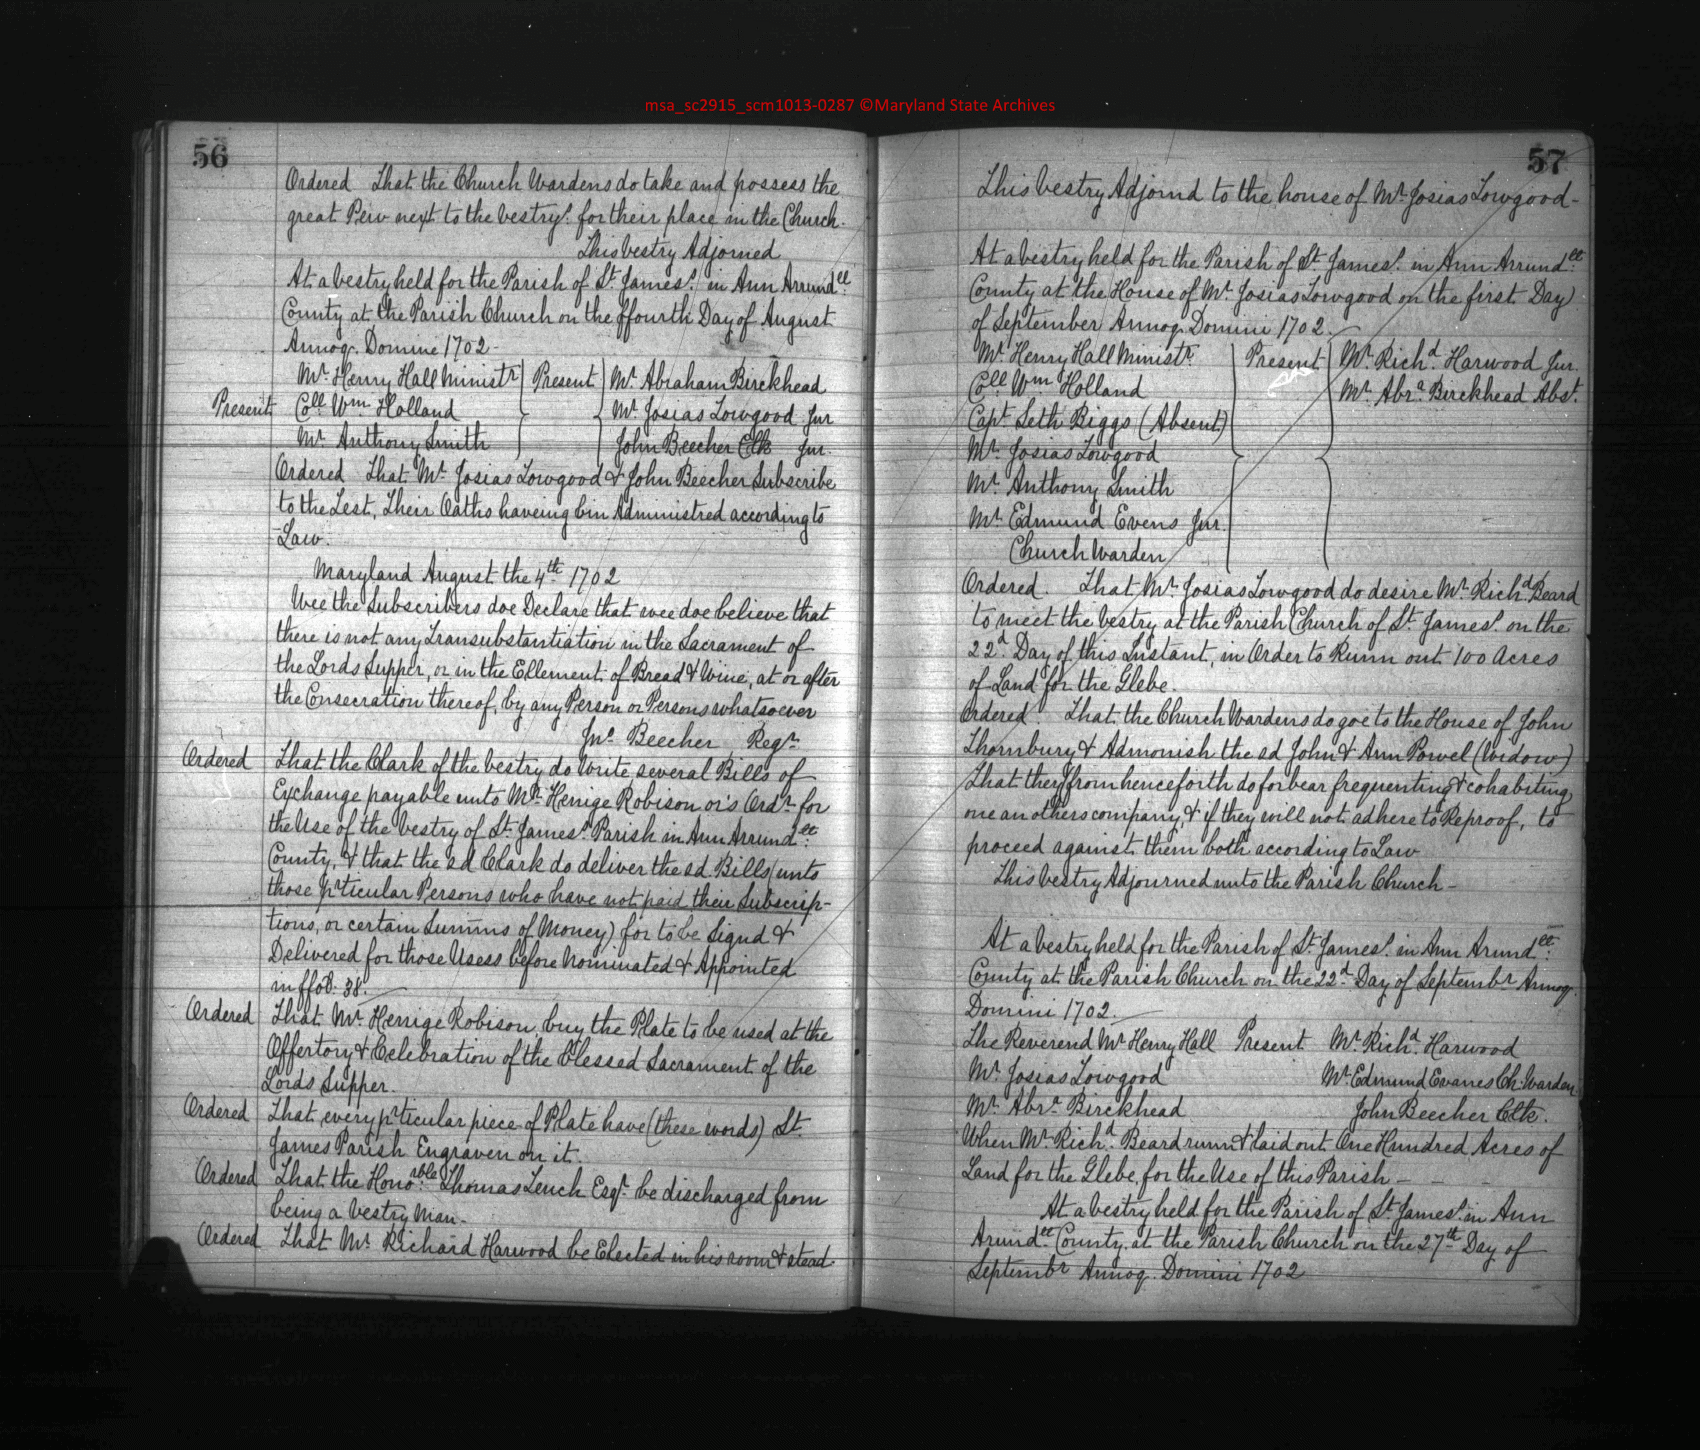 msa_sc2915_scm1013-0287 ©Maryland State Archives
56
Ordered That the Church Wardens do take and possess the
great Pew next to the vestry. for their place in the Church.
This vestry Adjorned
At a vestry held for the Parish of St. James. in Ann Arrundell.
County at the Parish Church on the ffourth Day of August
Annoq. Domine 1702
Mr. Henry Hall Ministr Present Mr. Abraham Birckhead
Present Coll Wm Holland Mr. Josias Towgood Jur
Mr. Anthony Smith John Beecher Clk Jur.
Ordered That Mr. Josias Towgood & John Beecher Subscribe
to the Test, Their Oaths haveing bin Administred according to
Law.
Maryland August the 4th 1702
Wee the Subscribers doe Declare that wee doe believe that
there is not any Transubstantiation in the Sacrament of
the Lords Supper, or in the Ellement of Bread & Wine, at or after
the Consecration thereof, by any Person or Persons whatsoever
Jno. Beecher Regr.
Ordered That the Clark of the vestry do write several Bills of
Exchange payable unto Mr. Henige Robison or's Ordr for
the Use of the vestry of St. James. Parish in Ann Arrundell.
County, & that the sd Clark do deliver the sd. Bills (unto
those prticular Persons who have not paid their Subscrip-
tions, or certain Summs of Money) for to be Signd &
Delivered for those Usess before Nominated & Appointed
in ffol. 38.
Ordered That Mr. Henige Robison buy the Plate to be used at the
Offertory & Celebration of the Blessed Sacrament of the
Lords Supper.
Ordered That every prticular piece of Plate have (these words) St.
James Parish Engraven on it.
Ordered That the Honorable Thomas Tench Esqr. be discharged from
being a Vestry Man.
Ordered That Mr. Richard Harwood be Elected in his room & stead.
57
This vestry Adjornd to the house of Mr. Josias Towgood-
At a vestry held for the Parish of St. James. in Ann Arrundell.
County at the House of Mr. Josias Towgood on the first Day
of September Annoq. Domini 1702.
Mr. Henry Hall Ministr. Present Mr. Richd. Harwood Jur.
Coll Wm Holland Mr. Abra. Birckhead Abst.
Capt. Seth Biggs (Absent)
Mr. Josias Towgood
Mr. Anthony Smith
Mr. Edmund Evens Jur.
Church Warden
Ordered. That Mr. Josias Towgood do desire Mr. Richd. Beard
to meet the vestry at the Parish Church of St. James. on the
22d. Day of this Instant, in Order to Runn out 100 Acres
of Land for the Glebe.
Ordered. That the Church Wardens do goe to the House of John
Thornbury & Admonish the sd John & Ann Powel (Widow)
That they from henceforth do forbear frequenting & cohabiting
one anothers company, & if they will not adhere to Reproof, to
proceed against them both according to Law
This vestry Adjourned unto the Parish Church -
At a vestry held for the Parish of St. James. in Ann Arundell.
County at the Parish Church on the 22d. Day of Septembr Annoq.
Domini 1702.
The Reverend Mr Henry Hall Present Mr. Richd. Harwood
Mr. Josias Towgood Mr Edmund Evanes Ch. Warden
Mr. Abra. Birckhead John Beecher Clk.
When Mr. Richd. Beard runn & laid out One Hundred Acres of
Land for the Glebe, for the Use of this Parish - - -
At a vestry held for the Parish of St. James. in Ann
Arundell County. at the Parish Church on the 27th Day of
Septembr Annoq. Domini 1702